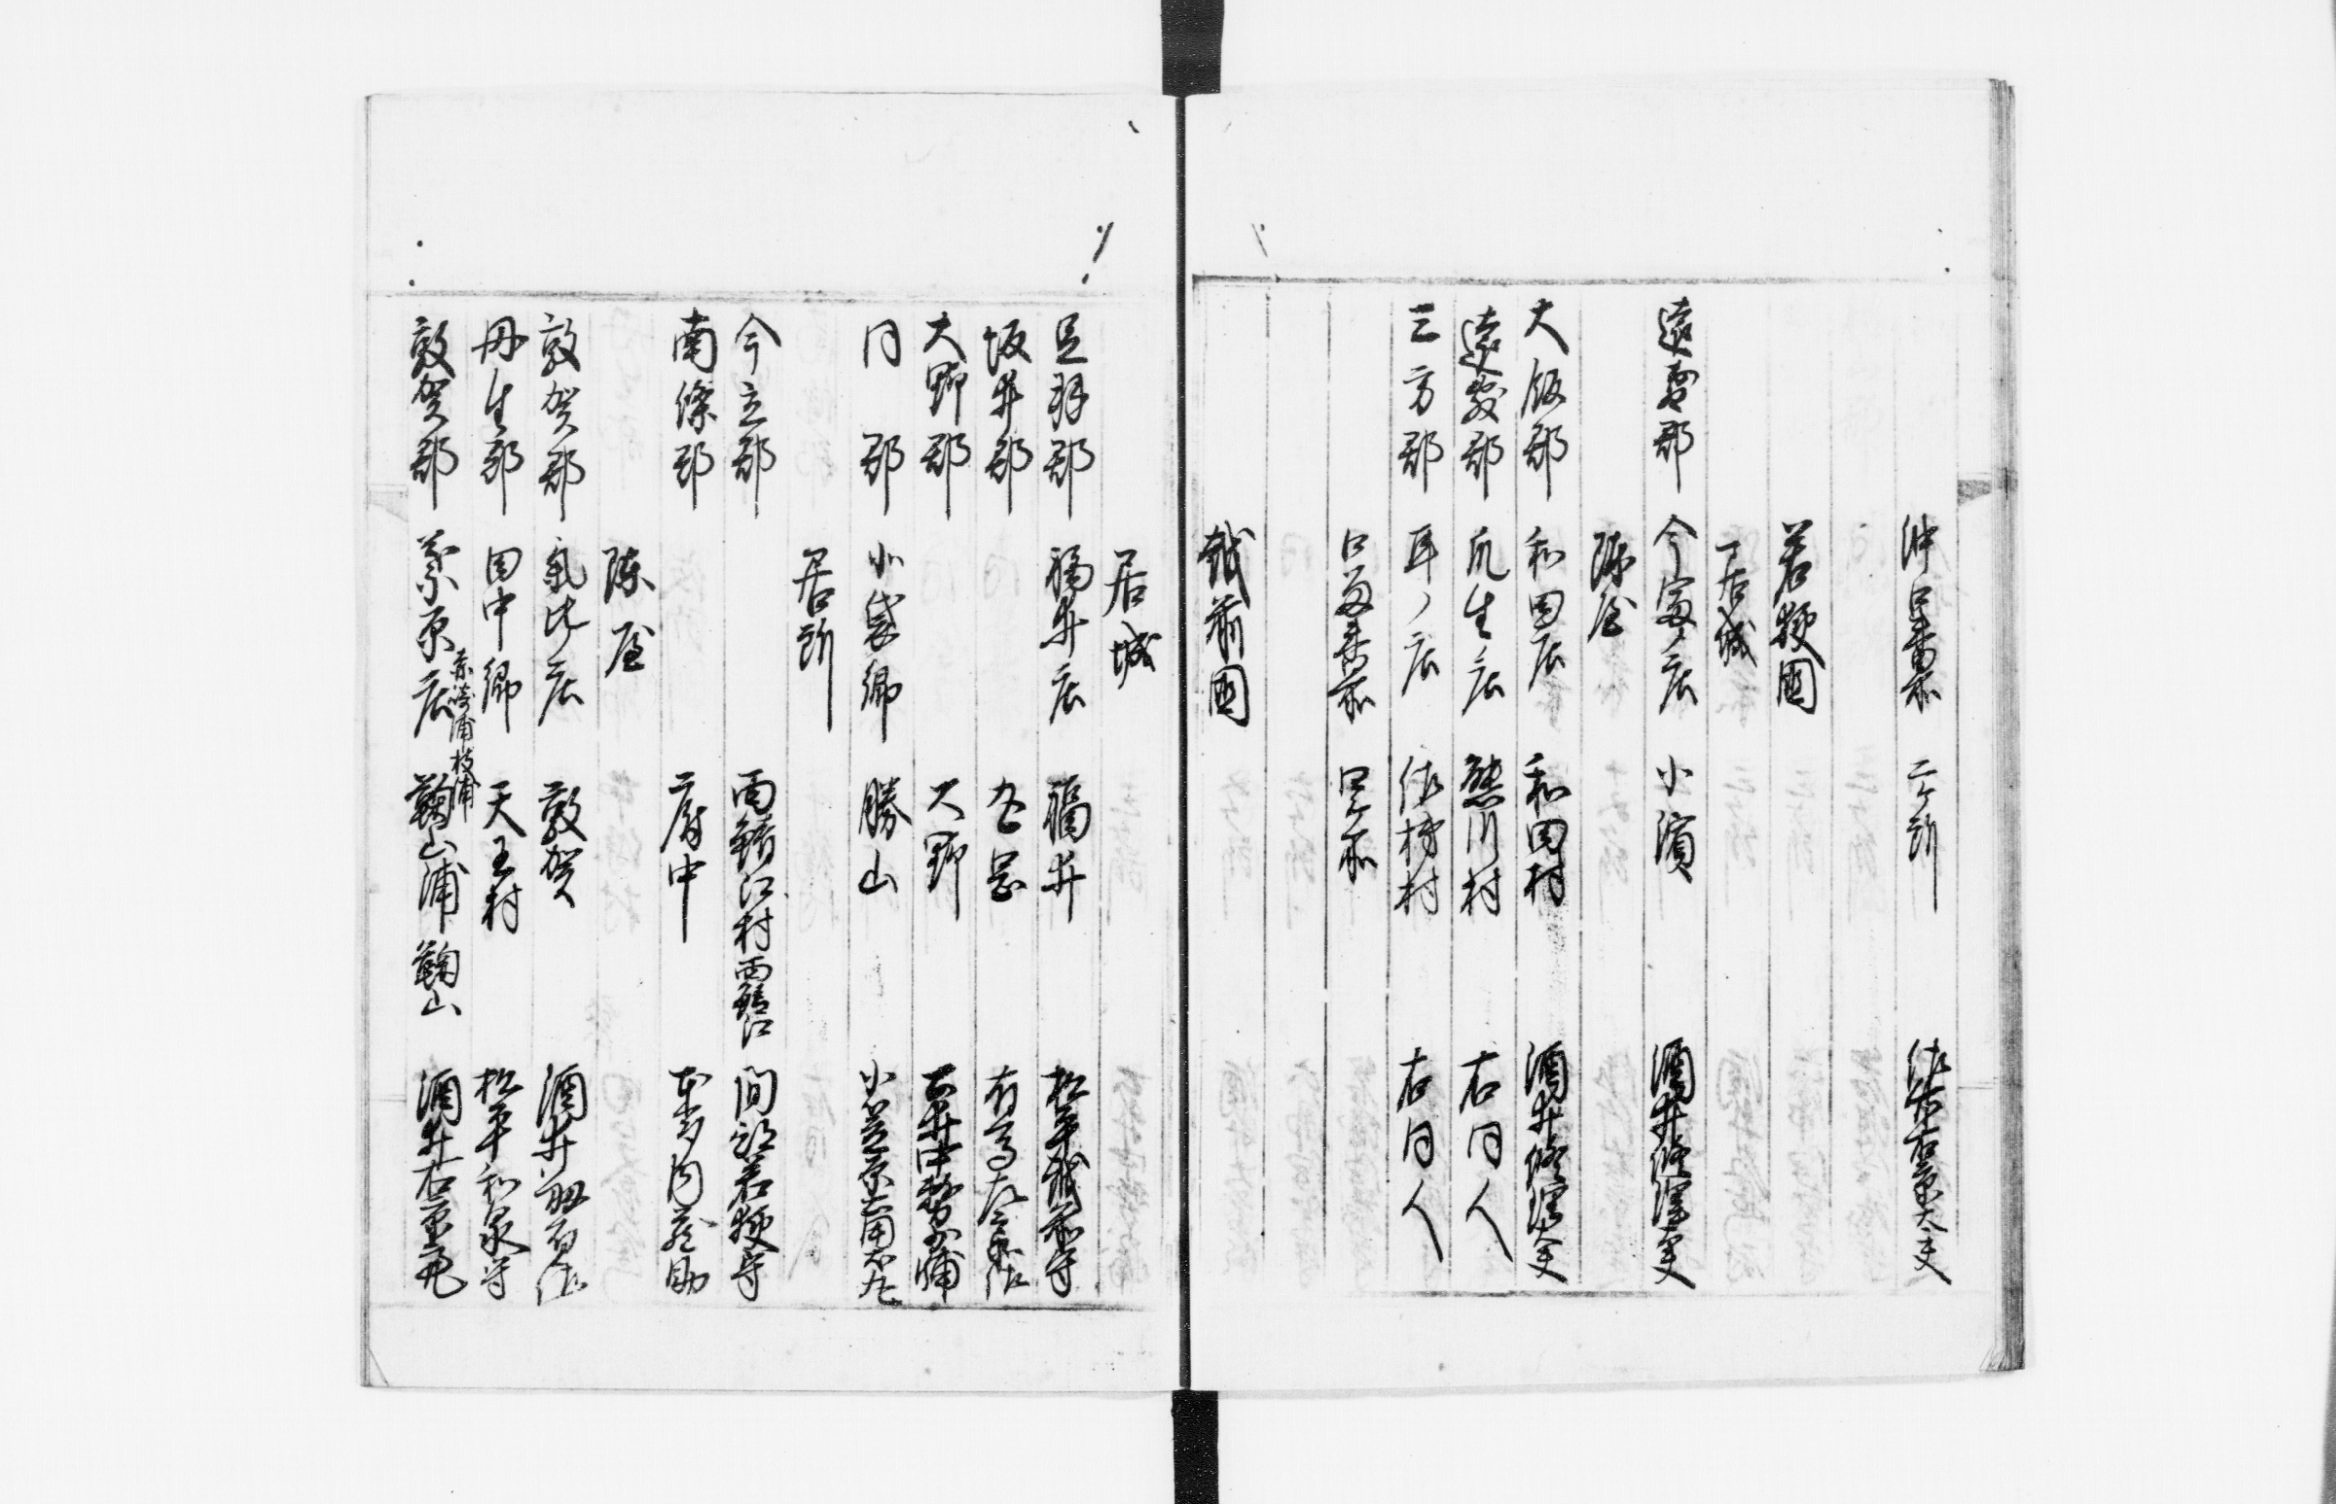 沖口番所 二ケ所 佐竹右京大夫
若狭國
居城
遠敷郡 今富ノ庄 小濱 酒井修理大夫
陣屋
大飯郡 和田庄 和田村 酒井修理大夫
遠敷郡 瓜生ノ庄 熊川村 右同人
三方郡 耳ノ庄 佐柿村 右同人
口留番所 三ケ所
越前國
居城
足羽郡 福井庄 福井 松平越前守
坂井郡 丸岡 有馬左兵衛佐
大野郡 大野 土井中務少輔
同郡 小袋郷 勝山 小笠原
居所
今立郡 西鯖江村 西鯖江 間部若狭守
南條郡 府中 本多内蔵助
陣屋
敦賀郡 氣比庄 敦賀 酒井
丹生郡 田中郷 天王村 松平和泉守
敦賀郡 葉原庄 赤崎浦枝浦 鞠山浦 鞠山 酒井右京亮